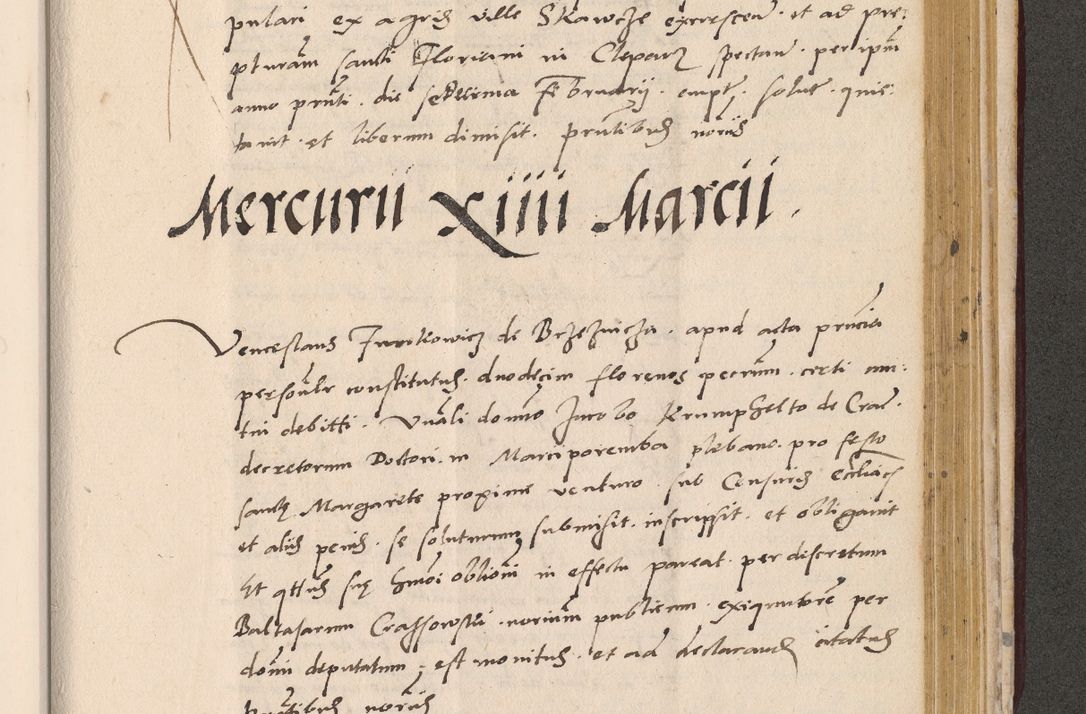 pulari ex agris ville Skawcze excrescen. et ad pre:
pturam sancti Floriani in Cleparz spectan. per ipm
anno prnti. die septima Februarij. empt. solut. quie:
tavit. et liberum dimisit. prntibus
Mercurii Xiiii Marcii.
Venceslaus de Brzeznicza. apud acta prncia
personalr constitutus. duodecim florenos pecunm. certi mu:
tui debitti. Vnabli domno Jacobo Krumphelto de Crac.
decretorum Doctori. in Marciporemba plebano. pro festo
sancte Margarete proxime venturo. sub Censuris ecclicis
et aliis penis. se soluturum submisit. inscripsit. et obligavit
Et qtus sue hmoi oblioni in effectu pareat. per discretum
Baltasarum Crassowski. notarium publicum. exequutorem per
domi deputatum. est monitus. et ad declarand citatus
prntibus